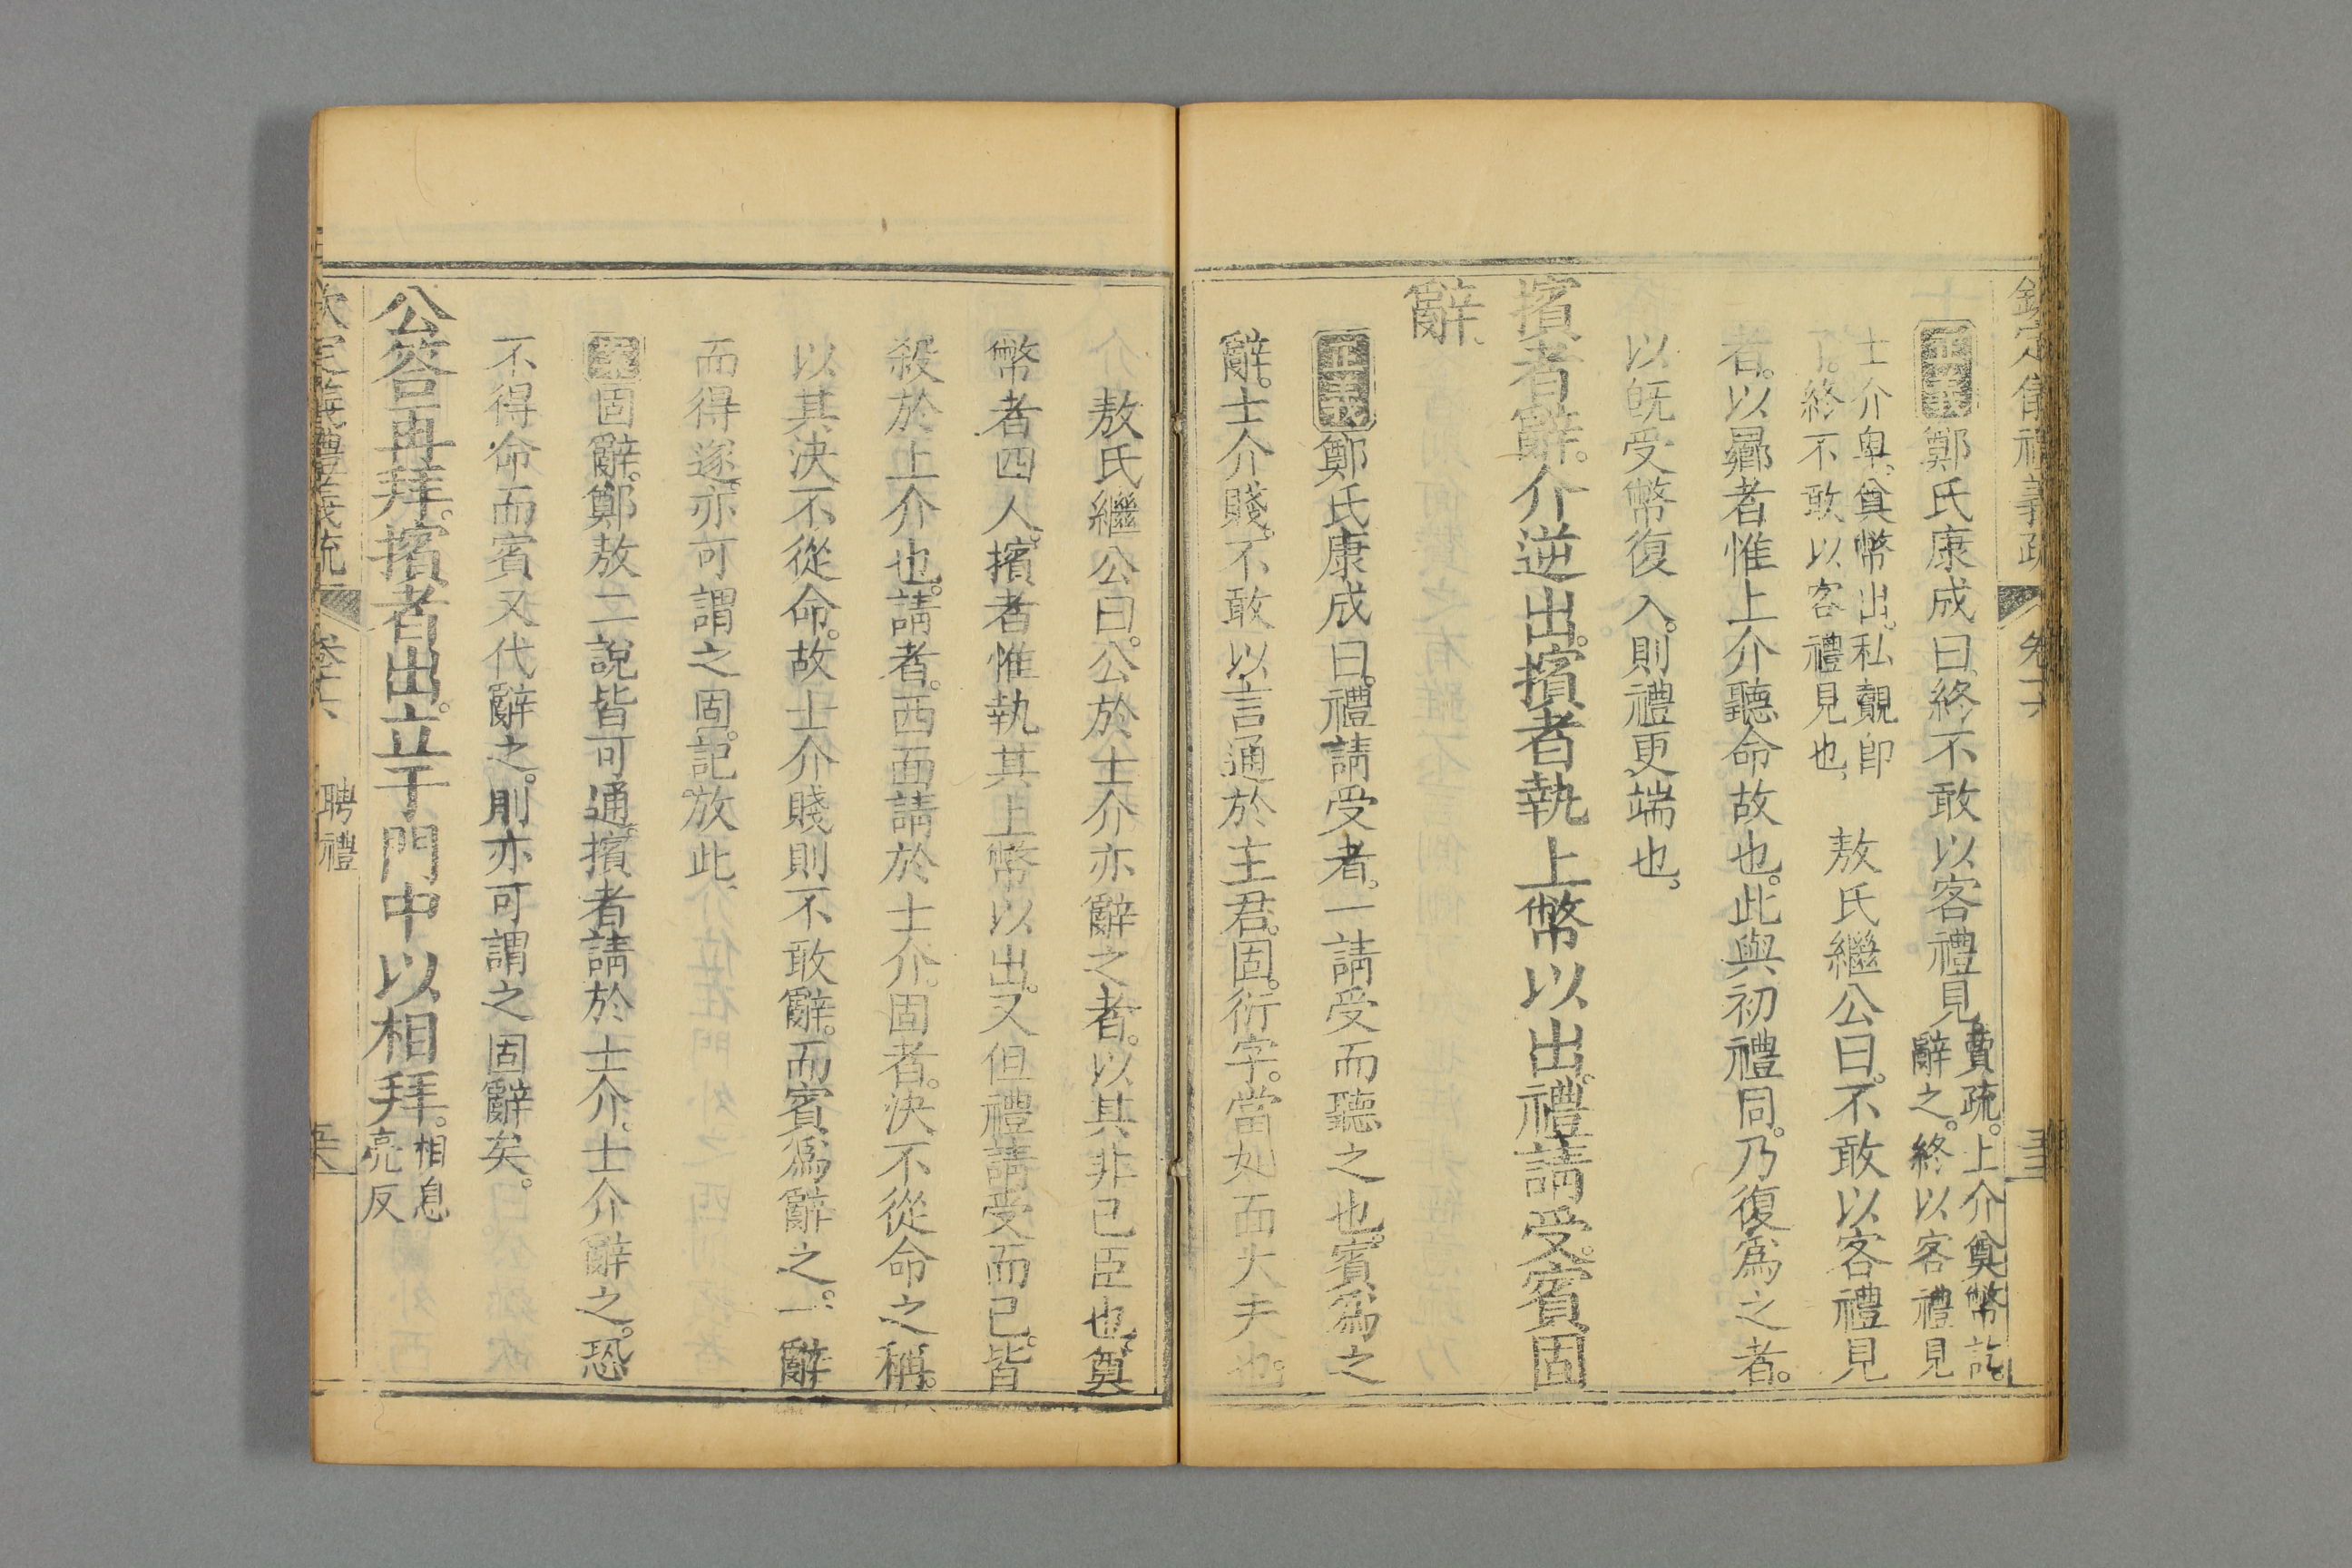 欽定儀禮義疏 卷十六
正義鄭氏康成曰終不敢以客禮見賈疏。上介奠幣訖。辭之。終以客禮見
士介卑。奠幣出。私覿即了。終不敢以客禮見也 敖氏繼公曰。不敢以客禮見
者。以曏者惟上介聽命故也。此與初禮同。乃復爲之者。
以旣受幣復入。則禮更端也。
擯者辭。介逆出。擯者執上幣以出。禮請受。賓固
辭。
正義鄭氏康成曰。禮請受者。一請受而聽之也。賓爲之
辭。士介賤。不敢以言通於主君。固。衍字。當如面大夫也。
敖氏繼公曰。公於士介亦辭之者。以其非己臣也。奠
幣者四人。擯者惟執其上幣以出。又但禮請受而已。皆
殺於上介也。請者。西面請於士介。固者。決不從命之稱。
以其決不從命。故士介賤則不敢辭。而賓爲辭之。一辭
而得遂。亦可謂之固。記放此
案固辭。鄭敖二說皆可通。擯者請於士介。士介辭之。恐
不得命而賓又代辭之。則亦可謂之固辭矣。
公答再拜。擯者出。立于門中以相拜。相息亮反
欽定儀禮義疏 卷十六 聘禮